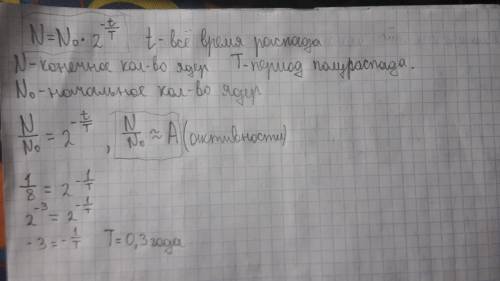 N=N₀·2^(-t/T)   t-всё время распада
N-конечное кол-во ядер   T-период полураспада.
N₀-начальное кол-во ядер
N/N₀ = 2^(-t/T) , N/N₀ ≈ A (активности)
1/8 = 2^(-1/T)
2^(-3) = 2^(-1/T)
-3 = -1/T   T=0,3 года